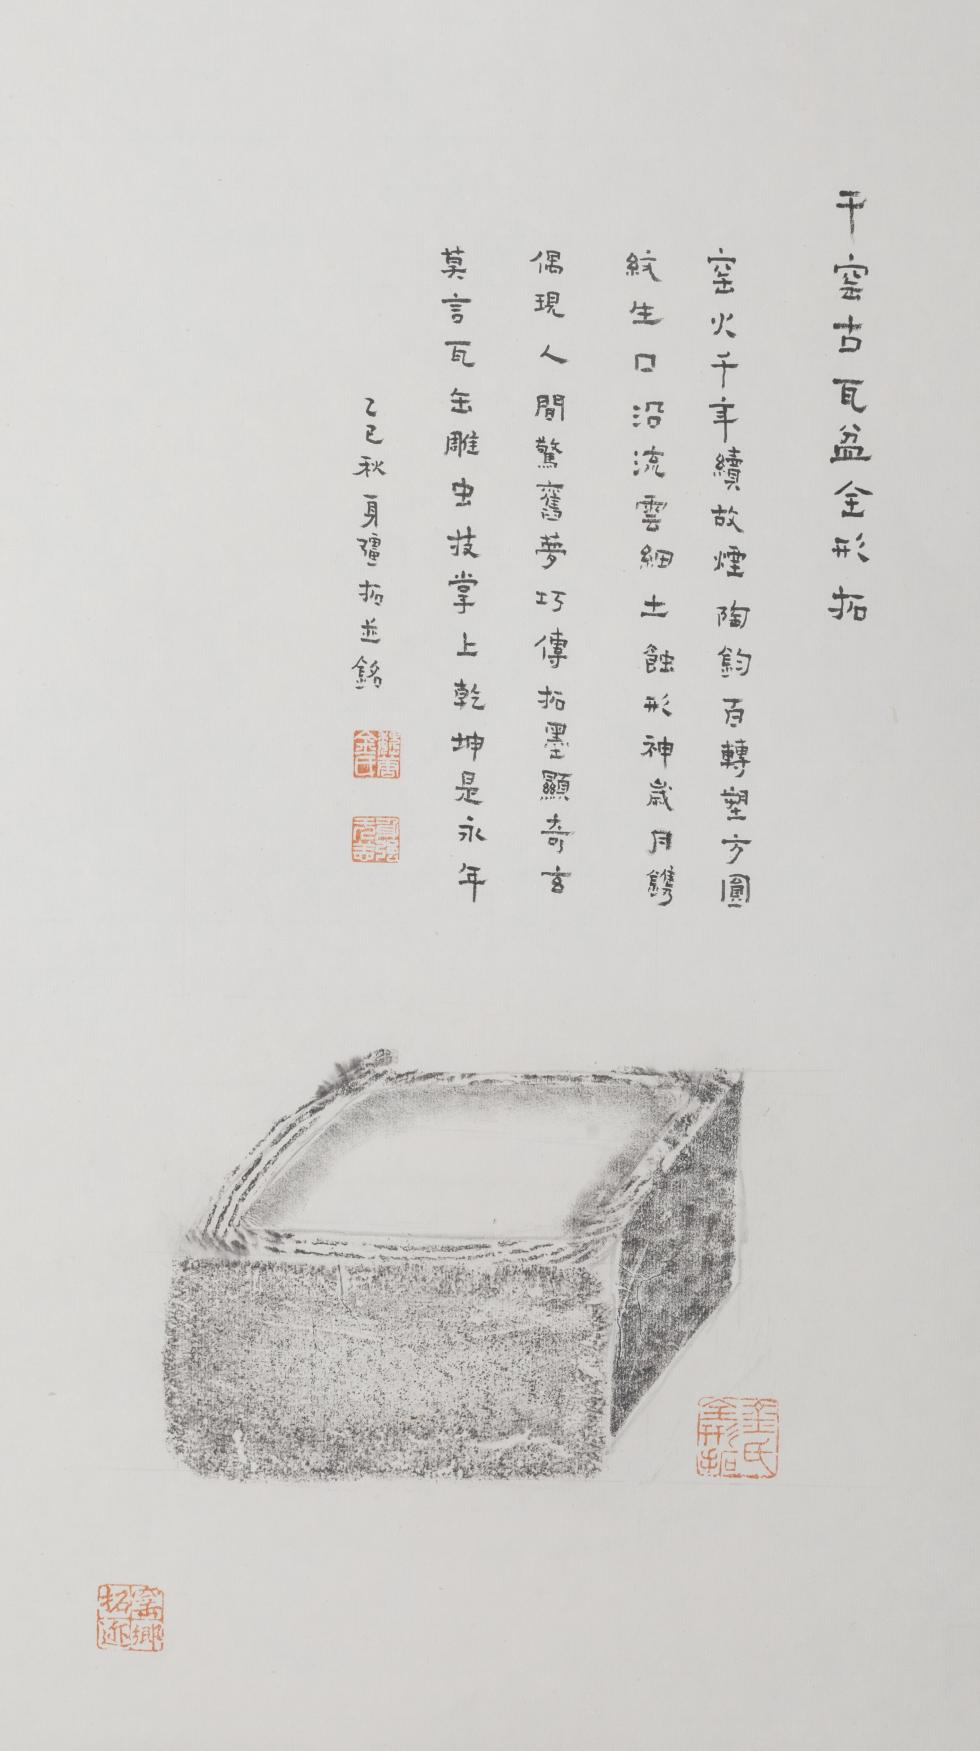 千窑古瓦盆全形拓
窑火千年續故煙陶鈞百轉塑方圓
紋生口沿流雲細土蝕形神歲月鐫
偶現人間驚舊夢巧傳拓墨顯奇玄
莫言瓦缶雕虫技掌上乾坤是永年
乙巳秋身彊拓並銘
金氏全形拓
窑鄉拓迹